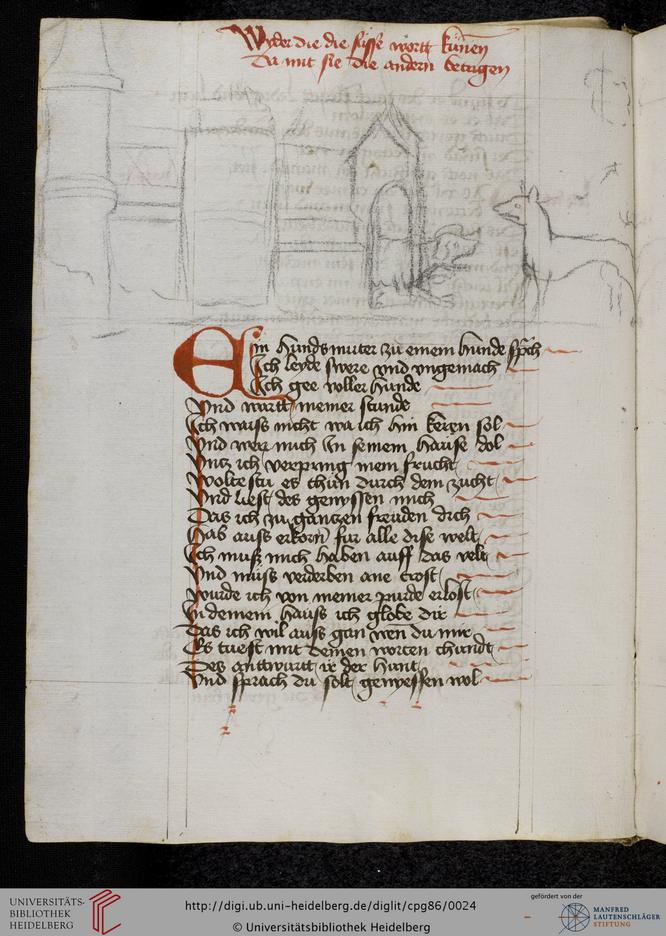 Wyder die die süsse wortt künen
Da mit sie die andern betrigen
Ein hunds muter zu einem hunde sprch
Ich leyde swere vnd vngemach
Ich gee voller hunde
Vnd wartt meiner stunde
Ich waiss nicht wa ich hin keren sol
Vnd wer mich in seinem hause dol
Vntz ich verpring mein frucht
Wolte stu es thun durch dein zucht
Vnd liest des genyssen mich
Das ich zu gantzen freuden dich
Has auss erkorn fur alle dise welt
Ich muss mich haben auff das velt
Vnd müss verderben ane trost
Wurde ich von meiner purde erlost
In deinem hauss ich globe dir
Das ich wil auss gan wen du mir
Es tuest mit deinen worten chundt
Des anttwurtt ir der hunt
Vnd sprach du solt genyessen wol
UNIVERSITÄTS-
BIBLIOTHEK
HEIDELBERG
http://digi.ub.uni-heidelberg.de/diglit/cpg86/0024
© Universitätsbibliothek Heidelberg
gefördert von der
MANFRED
LAUTENSCHLÄGER
STIFTUNG